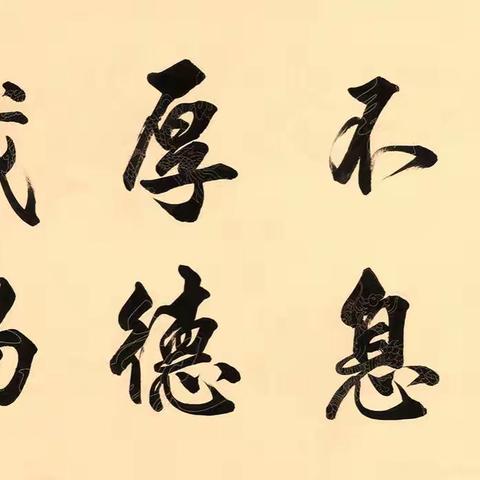 不息
厚德